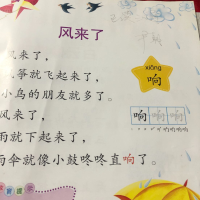 风来了
风来了，
筝就飞起来了，
小鸟的朋友就多了。
风来了，
雨就下起来了，
雨伞就像小鼓咚咚直响了。
xiǎng
响
响